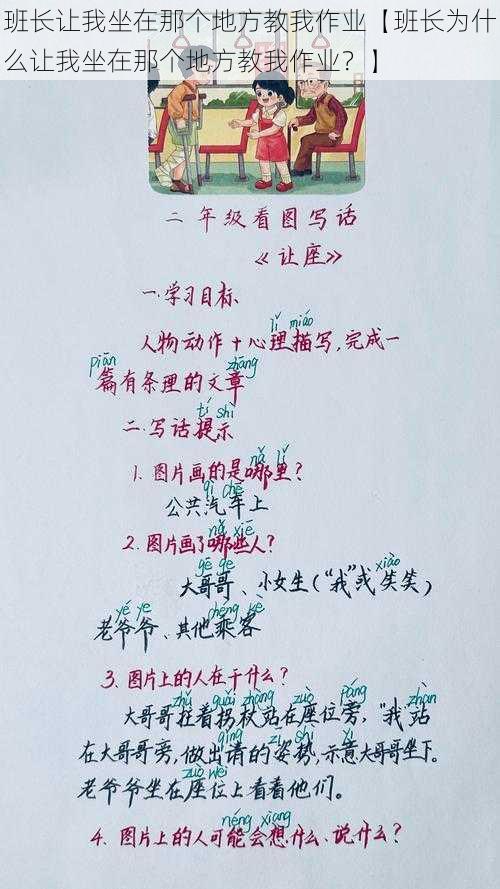 班长让我坐在那个地方教我作业【班长为什
么让我坐在那个地方教我作业？】
二年级看图写话
《让座》
一.学习目标
lǐ miáo
人物动作+心理描写,完成一
piān zhāng
篇有条理的文章
tí shì
二.写话提示
nǎ lǐ
1.图片画的是哪里?
qì chē
公共汽车上
nǎ xiē
2.图片画了哪些人?
gē ge xiào
大哥哥、小女生("我"或笑笑)
yé ye chéng kè
老爷爷、其他乘客
3.图片上的人在干什么?
zhǔ guǎi zhàng zuò páng zhàn
大哥哥拄着拐杖站在座位旁,"我"站
qǐng zī shì yì
在大哥哥旁,做出请的姿势,示意大哥哥坐下。
zuò wèi
老爷爷坐在座位上看着他们。
néng xiǎng
4.图片上的人可能会想什么、说什么?